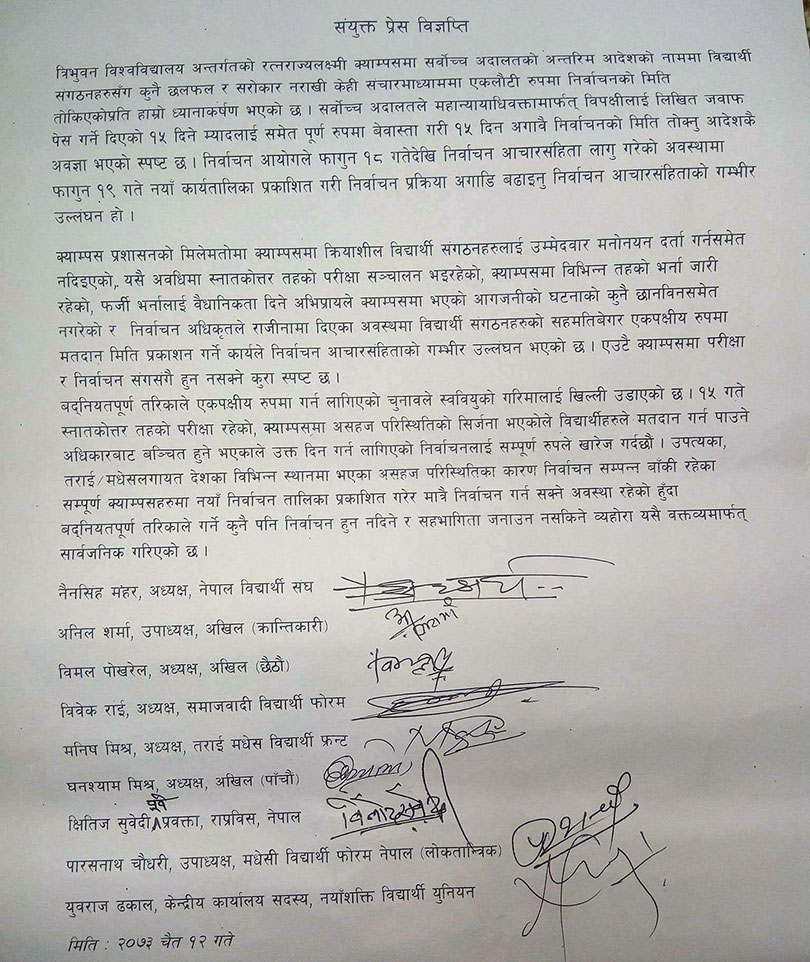 संयुक्त प्रेस विज्ञप्ति
त्रिभुवन विश्वविद्यालय अन्तर्गतको रत्नराज्यलक्ष्मी क्याम्पसमा सर्वोच्च अदालतको अन्तरिम आदेशको नाममा विद्यार्थी
संगठनहरुसँग कुनै छलफल र सरोकार नराखी केही संचारमाध्याममा एकलौटी रुपमा निर्वाचनको मिति
तोकिएकोप्रति हाम्रो ध्यानाकर्षण भएको छ । सर्वोच्च अदालतले महान्यायाधिवक्तामार्फत् विपक्षीलाई लिखित जवाफ
पेस गर्ने दिएको १५ दिने म्यादलाई समेत पूर्ण रुपमा बेवास्ता गरी १५ दिन अगावै निर्वाचनको मिति तोक्नु आदेशकै
अवज्ञा भएको स्पष्ट छ । निर्वाचन आयोगले फागुन १८ गतेदेखि निर्वाचन आचारसंहिता लागु गरेको अवस्थामा
फागुन १९ गते नयाँ कार्यतालिका प्रकाशित गरी निर्वाचन प्रक्रिया अगाडि बढाइनु निर्वाचन आचारसंहिताको गम्भीर
उल्लंघन हो ।
क्याम्पस प्रशासनको मिलेमतोमा क्याम्पसमा क्रियाशील विद्यार्थी संगठनहरुलाई उम्मेदवार मनोनयन दर्ता गर्नसमेत
नदिइएको, यसै अवधिमा स्नातकोत्तर तहको परीक्षा सञ्चालन भइरहेको, क्याम्पसमा विभिन्न तहको भर्ना जारी
रहेको, फर्जी भर्नालाई वैधानिकता दिने अभिप्रायले क्याम्पसमा भएको आगजनीको घटनाको कुनै छानविनसमेत
नगरेको र निर्वाचन अधिकृतले राजीनामा दिएका अवस्थमा विद्यार्थी संगठनहरुको सहमतिबेगर एकपक्षीय रुपमा
मतदान मिति प्रकाशन गर्ने कार्यले निर्वाचन आचारसंहिताको गम्भीर उल्लंघन भएको छ । एउटै क्याम्पसमा परीक्षा
र निर्वाचन संगसगै हुन नसक्ने कुरा स्पष्ट छ ।
बद्नियतपूर्ण तरिकाले एकपक्षीय रुपमा गर्न लागिएको चुनावले स्ववियुको गरिमालाई खिल्ली उडाएको छ । १५ गते
स्नातकोत्तर तहको परीक्षा रहेको, क्याम्पसमा असहज परिस्थितिको सिर्जना भएकोले विद्यार्थीहरुले मतदान गर्न पाउने
अधिकारबाट बञ्चित हुने भएकाले उक्त दिन गर्न लागिएको निर्वाचनलाई सम्पूर्ण रुपले खारेज गर्दछौं । उपत्यका,
तराई/मधेसलगायत देशका विभिन्न स्थानमा भएका असहज परिस्थितिका कारण निर्वाचन सम्पन्न बाँकी रहेका
सम्पूर्ण क्याम्पसहरुमा नयाँ निर्वाचन तालिका प्रकाशित गरेर मात्रै निर्वाचन गर्न सक्ने अवस्था रहेको हुँदा
बद्नियतपूर्ण तरिकाले गर्ने कुनै पनि निर्वाचन हुन नदिने र सहभागिता जनाउन नसकिने व्यहोरा यसै वक्तव्यमार्फत्
सार्वजनिक गरिएको छ ।
नैनसिंह महर, अध्यक्ष, नेपाल विद्यार्थी संघ
अनिल शर्मा, उपाध्यक्ष, अखिल (क्रान्तिकारी)
विमल पोखरेल, अध्यक्ष, अखिल (छैठौ)
विवेक राई, अध्यक्ष, समाजवादी विद्यार्थी फोरम
मनिष मिश्र, अध्यक्ष, तराई मधेस विद्यार्थी फ्रन्ट
घनश्याम मिश्र, अध्यक्ष, अखिल (पाँचौ)
क्षितिज सुवेदी, पूर्व प्रवक्ता, राप्रविस, नेपाल
पारसनाथ चौधरी, उपाध्यक्ष, मधेसी विद्यार्थी फोरम नेपाल (लोकतान्त्रिक)
युवराज ढकाल, केन्द्रीय कार्यालय सदस्य, नयाँशक्ति विद्यार्थी युनियन
मिति : २०७३ चैत १२ गते